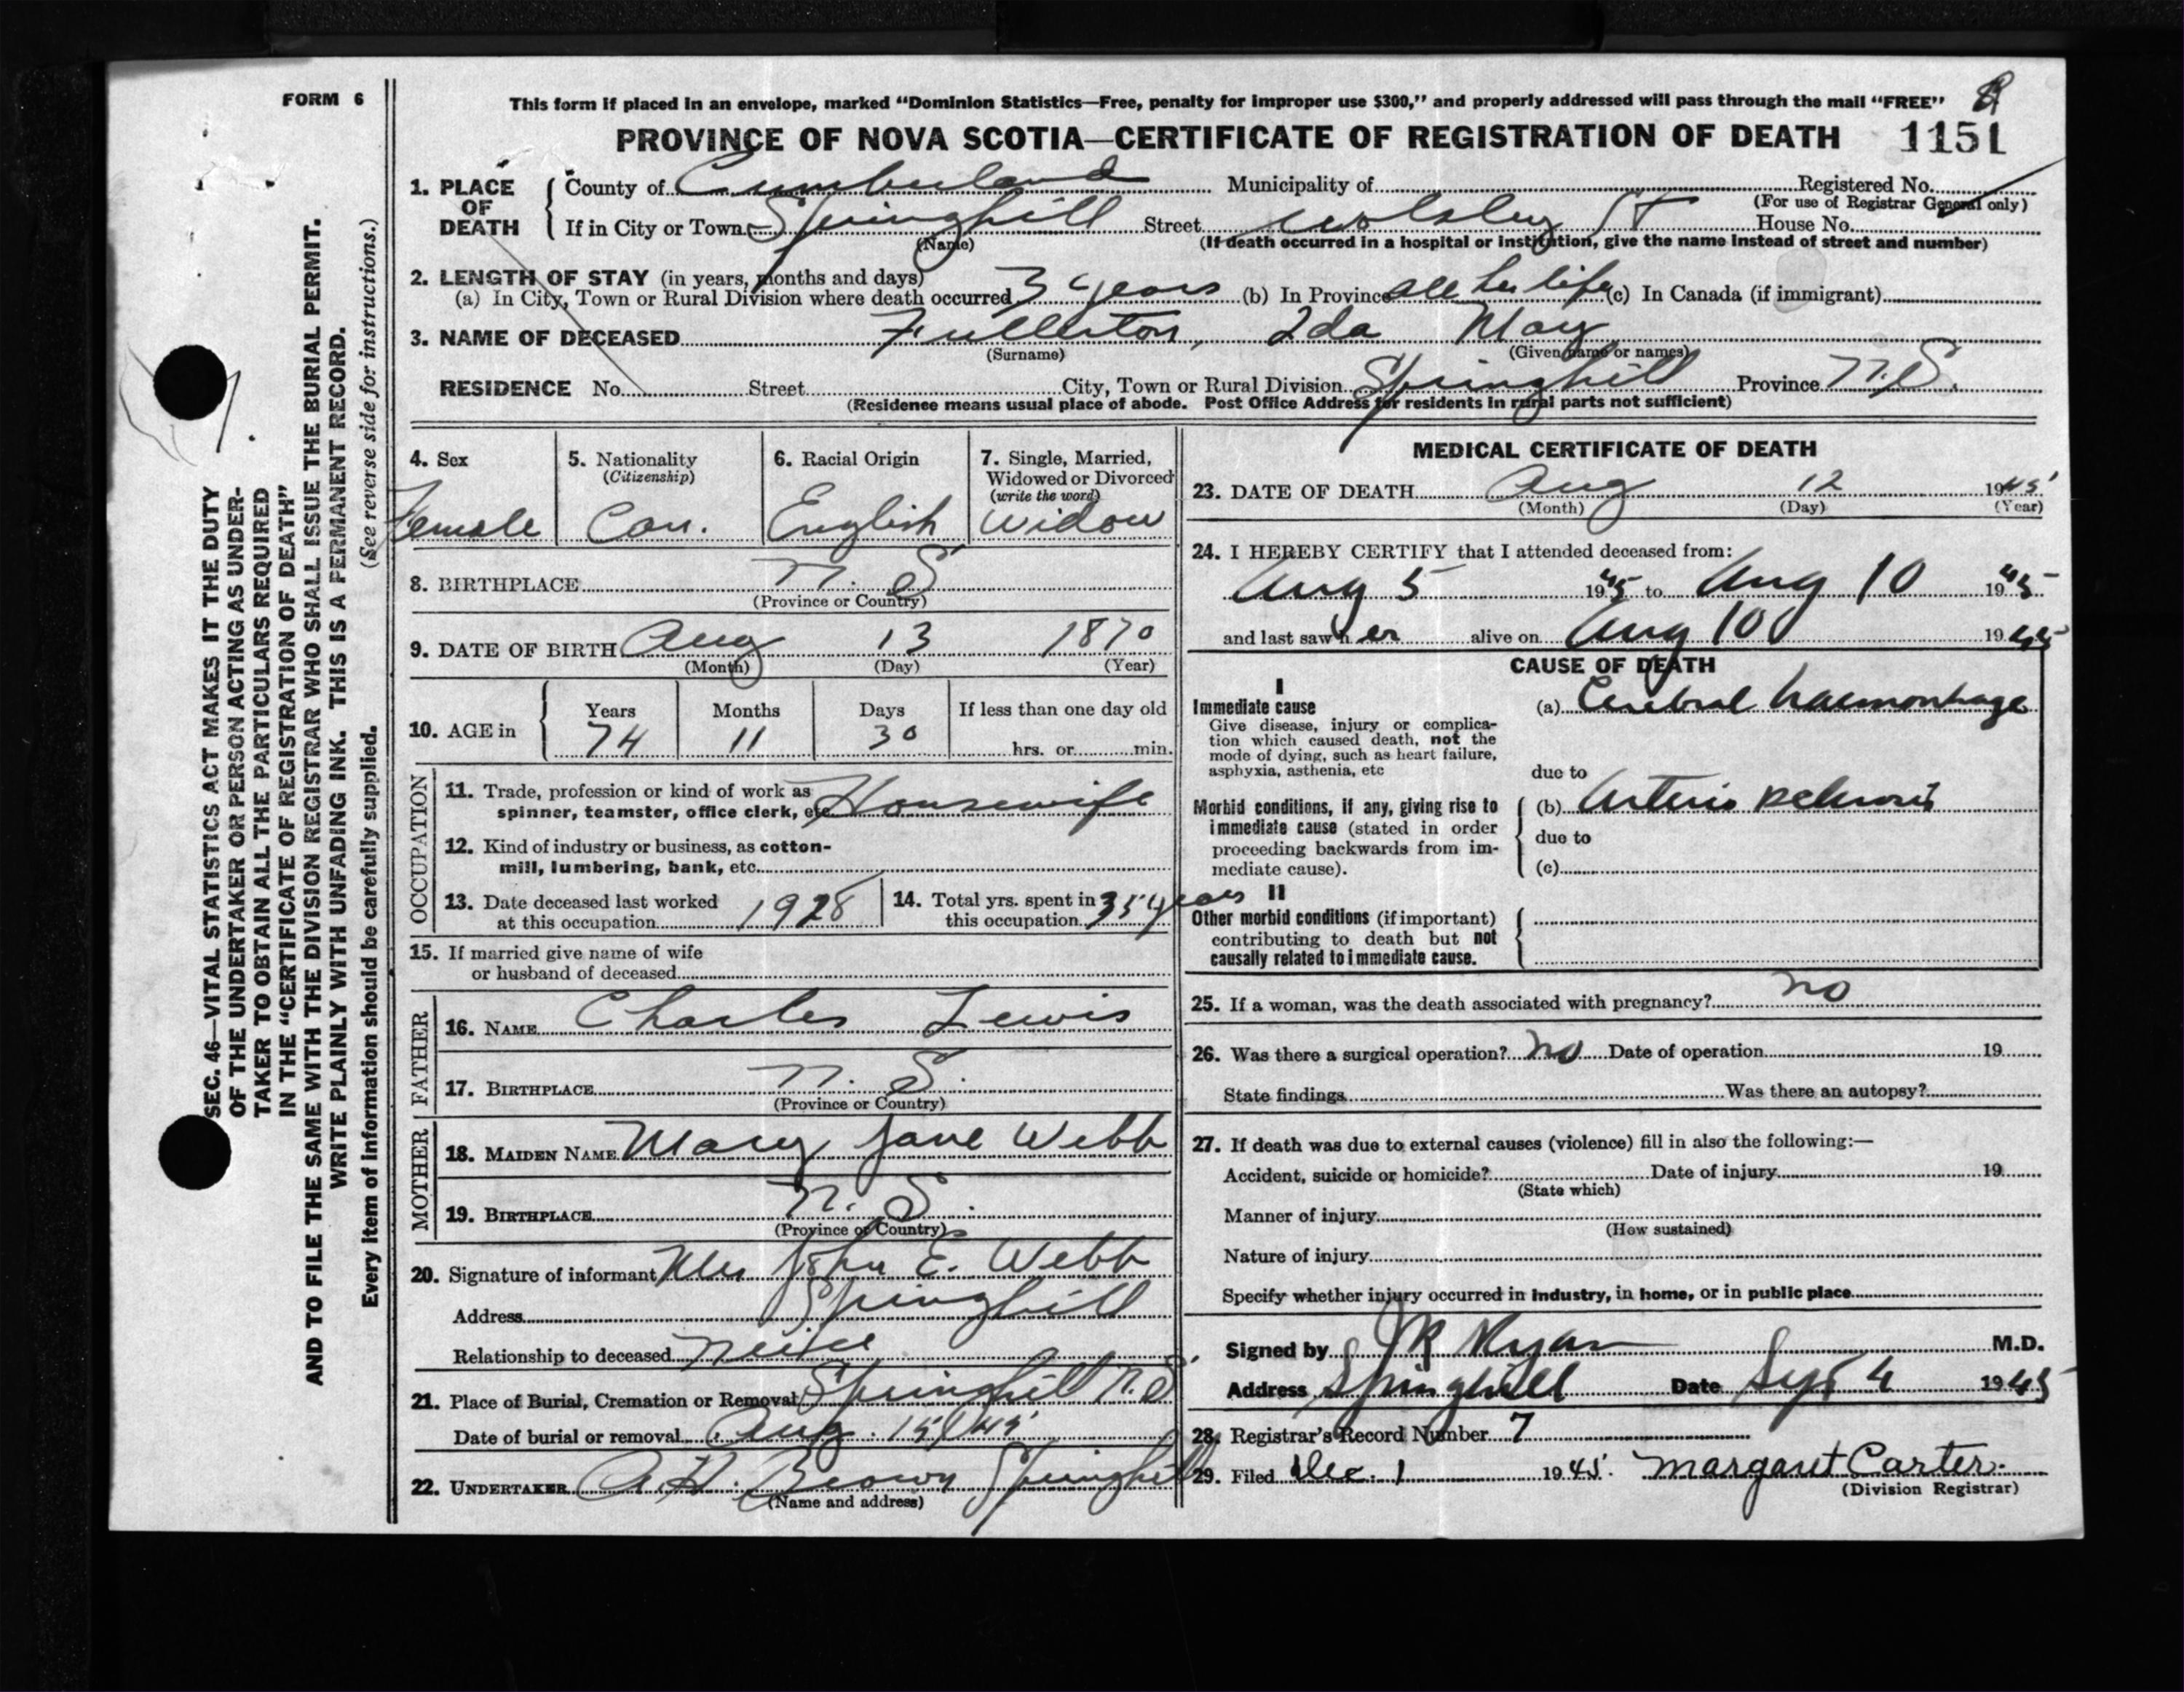 FORM 6
This form if placed in an envelope, marked "Dominion Statistics—Free, penalty for improper use $300," and properly addressed will pass through the mail "FREE"
PROVINCE OF NOVA SCOTIA—CERTIFICATE OF REGISTRATION OF DEATH 1151
1. PLACE OF DEATH
County of Cumberland Municipality of Registered No.
(For use of Registrar General only)
If in City or Town Springhill Street Wolsley St House No.
(Name) (If death occurred in a hospital or institution, give the name instead of street and number)
2. LENGTH OF STAY (in years, months and days)
(a) In City, Town or Rural Division where death occurred 3 years (b) In Province all her life (c) In Canada (if immigrant)
3. NAME OF DECEASED Fullerton, Ida May
(Surname) (Given name or names)
RESIDENCE No. Street City, Town or Rural Division Springhill Province N.S.
(Residence means usual place of abode. Post Office Address for residents in rural parts not sufficient)
4. Sex
Female
5. Nationality
(Citizenship)
Can.
6. Racial Origin
English
7. Single, Married,
Widowed or Divorced
(write the word)
Widow
8. BIRTHPLACE N. S
(Province or Country)
9. DATE OF BIRTH Aug 13 1870
(Month) (Day) (Year)
10. AGE in
Years Months Days If less than one day old
74 11 30 hrs. or min.
OCCUPATION
11. Trade, profession or kind of work as
spinner, teamster, office clerk, etc. Housewife
12. Kind of industry or business, as cotton-
mill, lumbering, bank, etc.
13. Date deceased last worked
at this occupation 1928
14. Total yrs. spent in
this occupation 35 years
15. If married give name of wife
or husband of deceased
FATHER
16. NAME Charles Lewis
17. BIRTHPLACE N. S.
(Province or Country)
MOTHER
18. MAIDEN NAME Mary Jane Webb
19. BIRTHPLACE N. S.
(Province or Country)
20. Signature of informant Mrs John E. Webb
Address Springhill
Relationship to deceased Neice
21. Place of Burial, Cremation or Removal Springhill N.S
Date of burial or removal Aug. 15/45
22. UNDERTAKER A.H. Brown Springhill
(Name and address)
MEDICAL CERTIFICATE OF DEATH
23. DATE OF DEATH Aug 12 1945
(Month) (Day) (Year)
24. I HEREBY CERTIFY that I attended deceased from:
Aug 5 1945 to Aug 10 1945
and last saw her alive on Aug 10 1945
CAUSE OF DEATH
I
Immediate cause
Give disease, injury or complica-
tion which caused death, not the
mode of dying, such as heart failure,
asphyxia, asthenia, etc
(a) Cerebral haemorrhage
due to
Morbid conditions, if any, giving rise to
immediate cause (stated in order
proceeding backwards from im-
mediate cause).
(b) Arterio sclerosis
due to
(c)
II
Other morbid conditions (if important)
contributing to death but not
causally related to immediate cause.
25. If a woman, was the death associated with pregnancy? no
26. Was there a surgical operation? no Date of operation 19
State findings Was there an autopsy?
27. If death was due to external causes (violence) fill in also the following:—
Accident, suicide or homicide? Date of injury 19
(State which)
Manner of injury
(How sustained)
Nature of injury
Specify whether injury occurred in industry, in home, or in public place
Signed by JR Ryan M.D.
Address Springhill Date Sept 4 1945
28. Registrar's Record Number 7
29. Filed Dec. 1 1945. Margaret Carter.
(Division Registrar)
SEC. 46—VITAL STATISTICS ACT MAKES IT THE DUTY
OF THE UNDERTAKER OR PERSON ACTING AS UNDER-
TAKER TO OBTAIN ALL THE PARTICULARS REQUIRED
IN THE "CERTIFICATE OF REGISTRATION OF DEATH"
AND TO FILE THE SAME WITH THE DIVISION REGISTRAR WHO SHALL ISSUE THE BURIAL PERMIT.
WRITE PLAINLY WITH UNFADING INK. THIS IS A PERMANENT RECORD.
Every item of information should be carefully supplied. (See reverse side for instructions.)